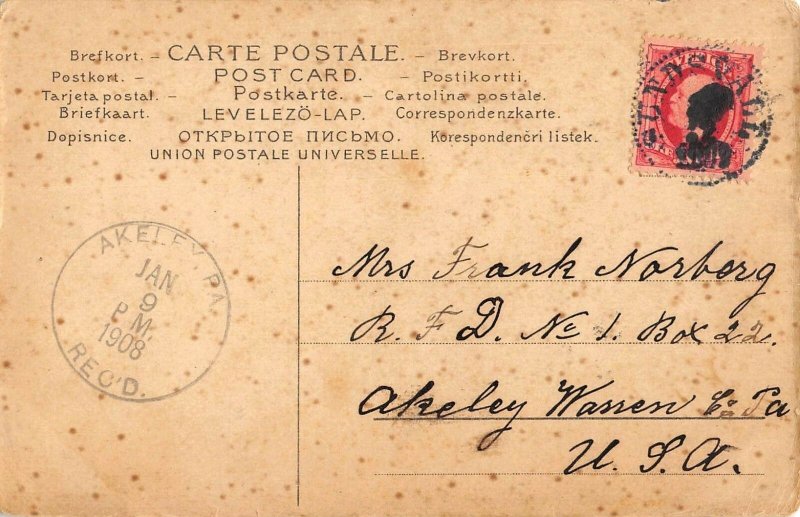 Brefkort. – CARTE POSTALE. – Brevkort.
Postkort. – POST CARD. – Postikortti.
Tarjeta postal. – Postkarte. – Cartolina postale.
Briefkaart. LEVELEZÖ-LAP. Correspondenzkarte.
Dopisnice. ОТКРЫТОЕ ПИСЬМО. Korespondenčri listek.
UNION POSTALE UNIVERSELLE.
AKELEY PA.
JAN
9
P M.
1908
REC'D.
Mrs Frank Norberg
R. F. D. No 1. Box 22.
Akeley Warren Co Pa
U. S. A.